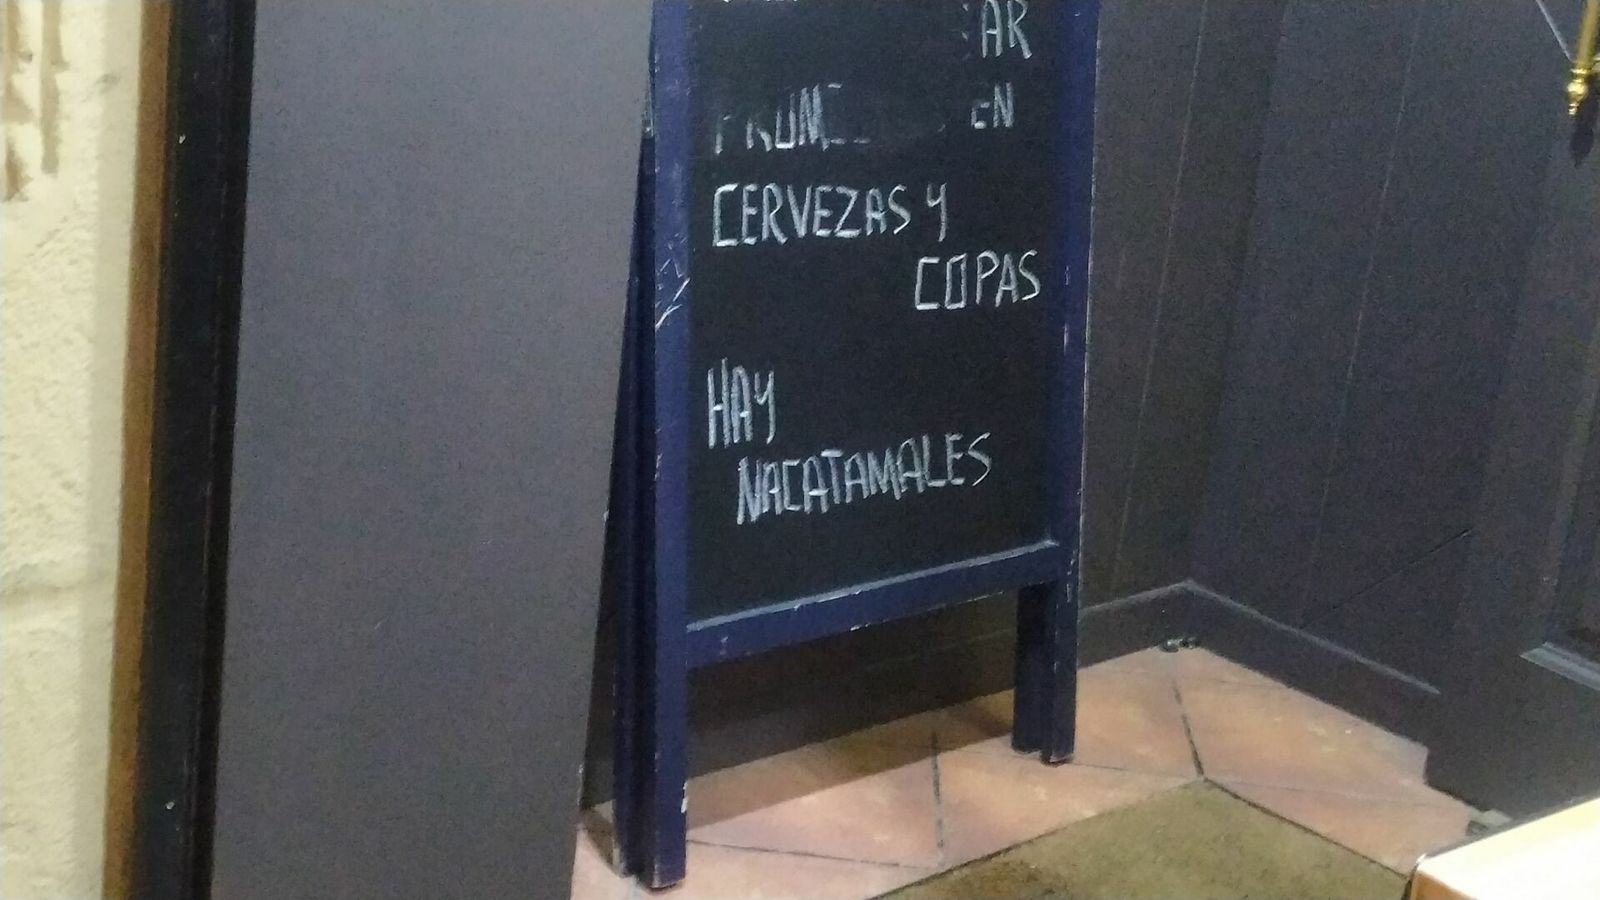 EN
CERVEZAS Y
COPAS
HAY
NACATAMALES